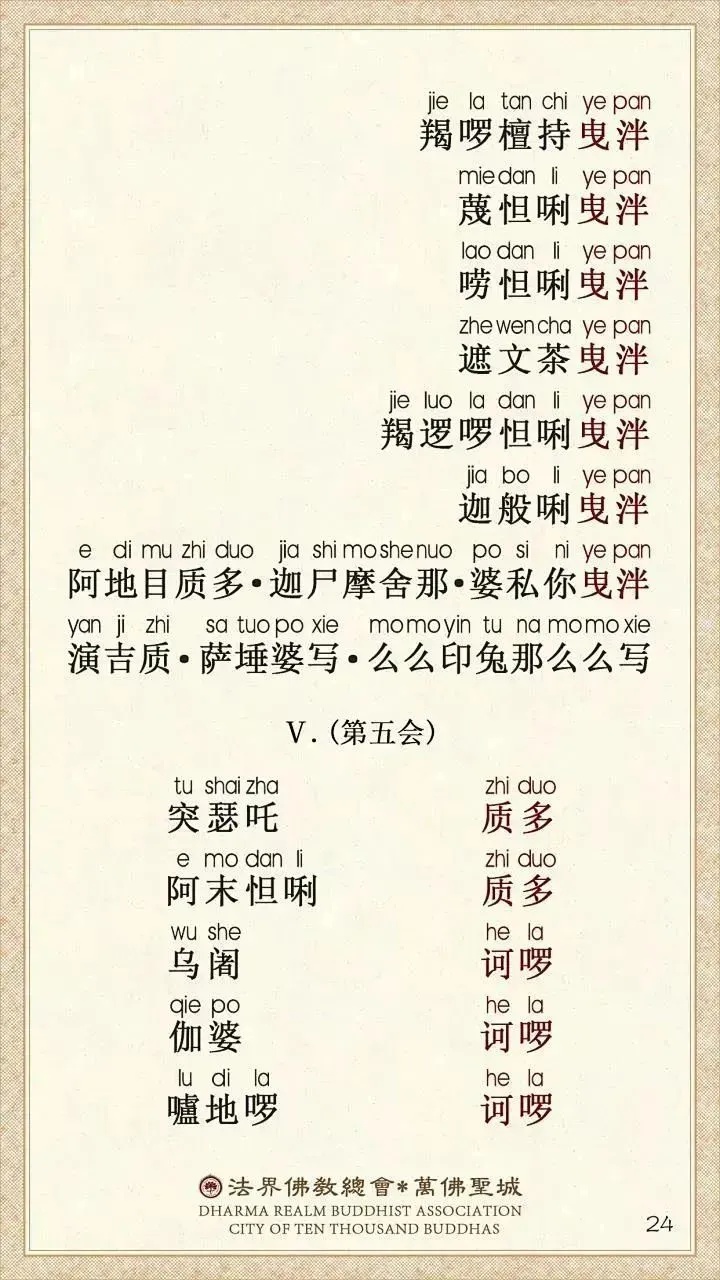 jie la tan chi ye pan
羯啰檀持曳泮
mie dan li ye pan
蔑怛唎曳泮
lao dan li ye pan
唠怛唎曳泮
zhe wen cha ye pan
遮文茶曳泮
jie luo la dan li ye pan
羯逻啰怛唎曳泮
jia bo li ye pan
迦般唎曳泮
e di mu zhi duo jia shi mo she nuo po si ni ye pan
阿地目质多•迦尸摩舍那•婆私你曳泮
yan ji zhi sa tuo po xie mo mo yin tu na mo mo xie
演吉质•萨埵婆写•么么印兔那么么写
V.(第五会)
tu shai zha zhi duo
突瑟吒 质多
e mo dan li zhi duo
阿末怛唎 质多
wu she he la
乌阇 诃啰
qie po he la
伽婆 诃啰
lu di la he la
嚧地啰 诃啰
法界佛教總會*萬佛聖城
DHARMA REALM BUDDHIST ASSOCIATION
CITY OF TEN THOUSAND BUDDHAS
24